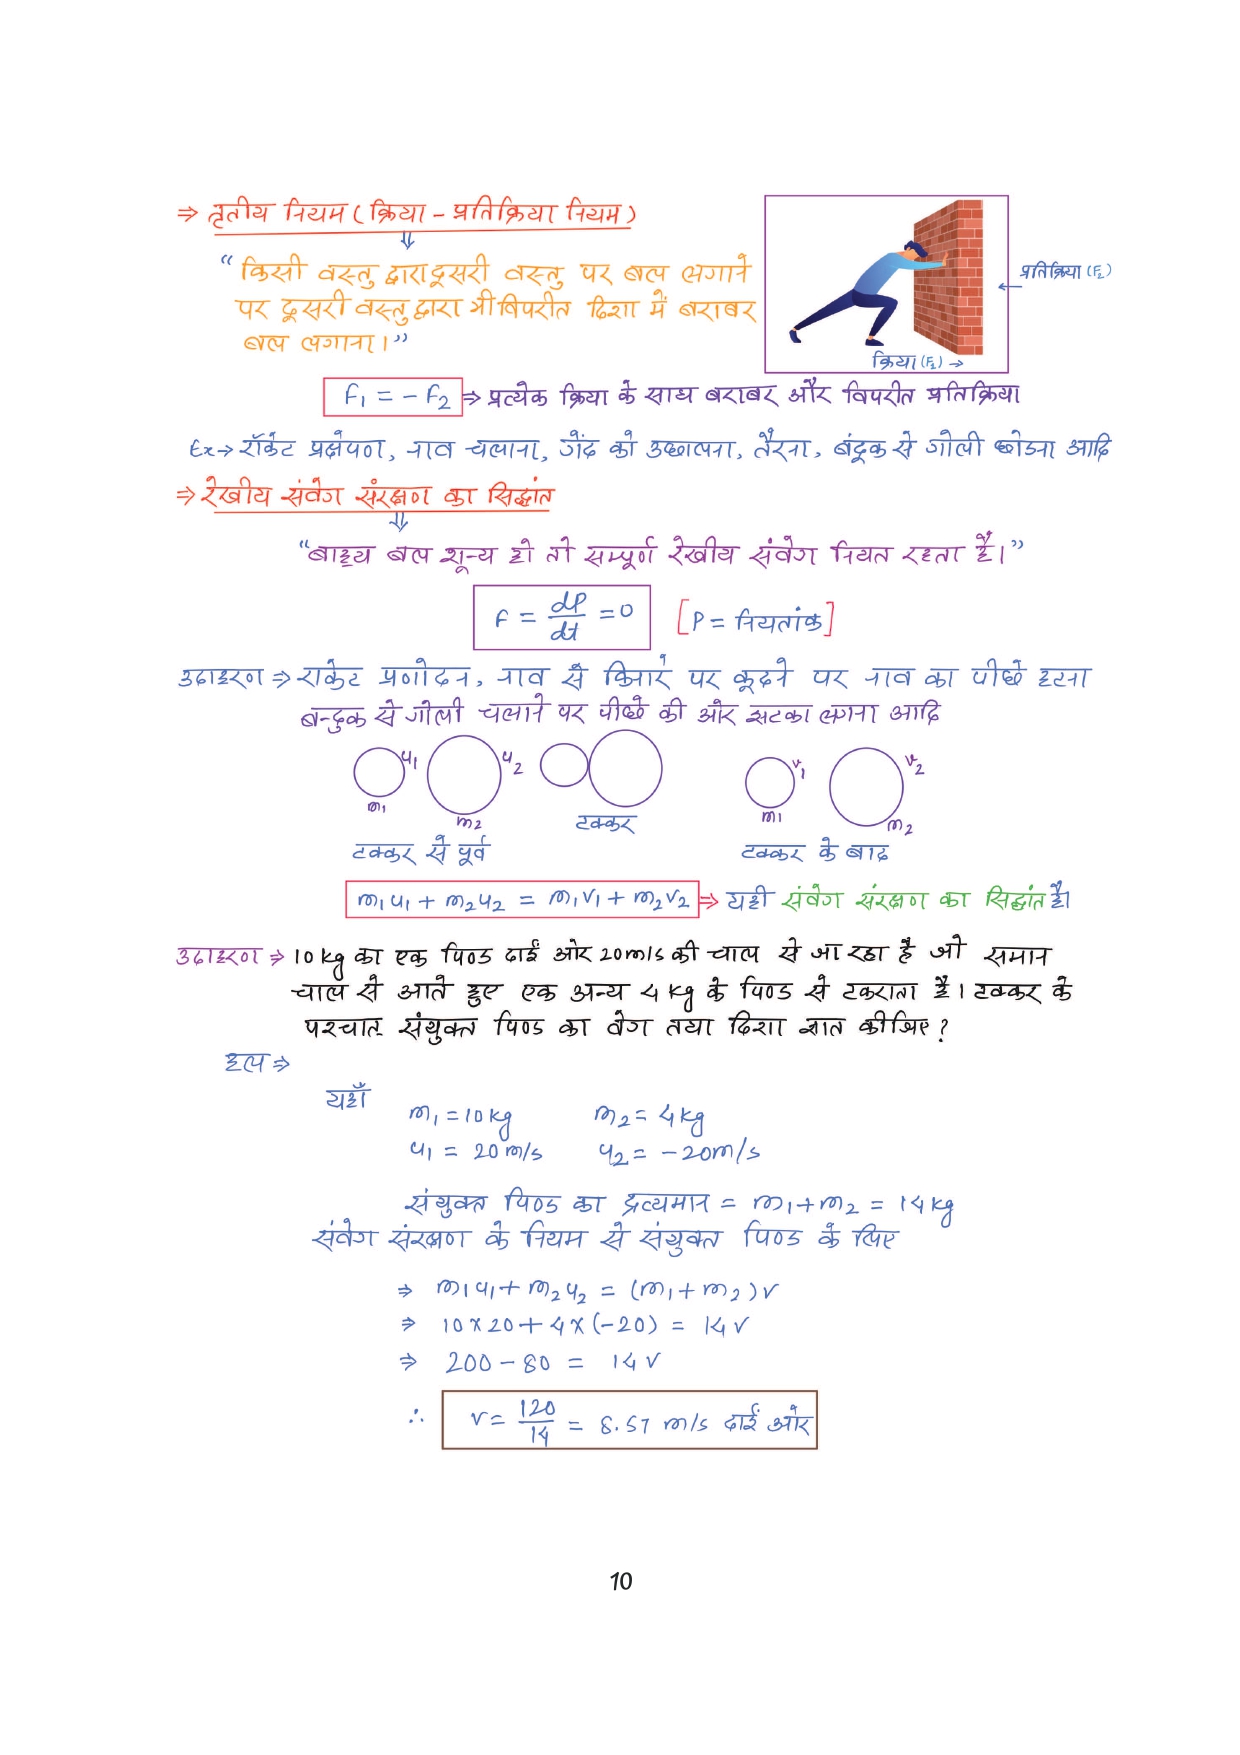 ⇒ तृतीय नियम ( क्रिया - प्रतिक्रिया नियम )
⇓
“ किसी वस्तु द्वारा दूसरी वस्तु पर बल लगाने
पर दूसरी वस्तु द्वारा भी विपरीत दिशा में बराबर
बल लगाना। ”
प्रतिक्रिया (F₂)
←
क्रिया (F₁) →
F₁ = - F₂ ⇒ प्रत्येक क्रिया के साथ बराबर और विपरीत प्रतिक्रिया
Ex → रॉकेट प्रक्षेपण, नाव चलाना, गेंद को उछालना, तैरना, बंदूक से गोली छोडना आदि
⇒ रेखीय संवेग संरक्षण का सिद्धांत
⇓
“बाह्य बल शून्य हो तो सम्पूर्ण रेखीय संवेग नियत रहता है। ”
F = dP/dt = 0 [P = नियतांक]
उदाहरण ⇒ राकेट प्रणोदन, नाव से किनारे पर कूदने पर नाव का पीछे हटना
बन्दुक से गोली चलाने पर पीछे की ओर झटका लगना आदि
u₁ u₂ v₁ v₂
m₁ m₂ टक्कर m₁ m₂
टक्कर से पूर्व टक्कर के बाद
m₁u₁ + m₂u₂ = m₁v₁ + m₂v₂ ⇒ यही संवेग संरक्षण का सिद्धांत है।
उदाहरण ⇒ 10 kg का एक पिण्ड दाईं ओर 20m/s की चाल से जा रहा है जो समान
चाल से आते हुए एक अन्य 4 kg के पिण्ड से टकराता है। टक्कर के
पश्चात् संयुक्त पिण्ड का वेग तथा दिशा ज्ञात कीजिए ?
हल ⇒
यहाँ
m₁ = 10 kg m₂ = 4 kg
u₁ = 20 m/s u₂ = - 20m/s
संयुक्त पिण्ड का द्रव्यमान = m₁ + m₂ = 14 kg
संवेग संरक्षण के नियम से संयुक्त पिण्ड के लिए
⇒ m₁u₁ + m₂u₂ = (m₁ + m₂) v
⇒ 10 x 20 + 4 x (-20) = 14 v
⇒ 200 - 80 = 14 v
∴ v = 120/14 = 8.57 m/s दाईं ओर
10